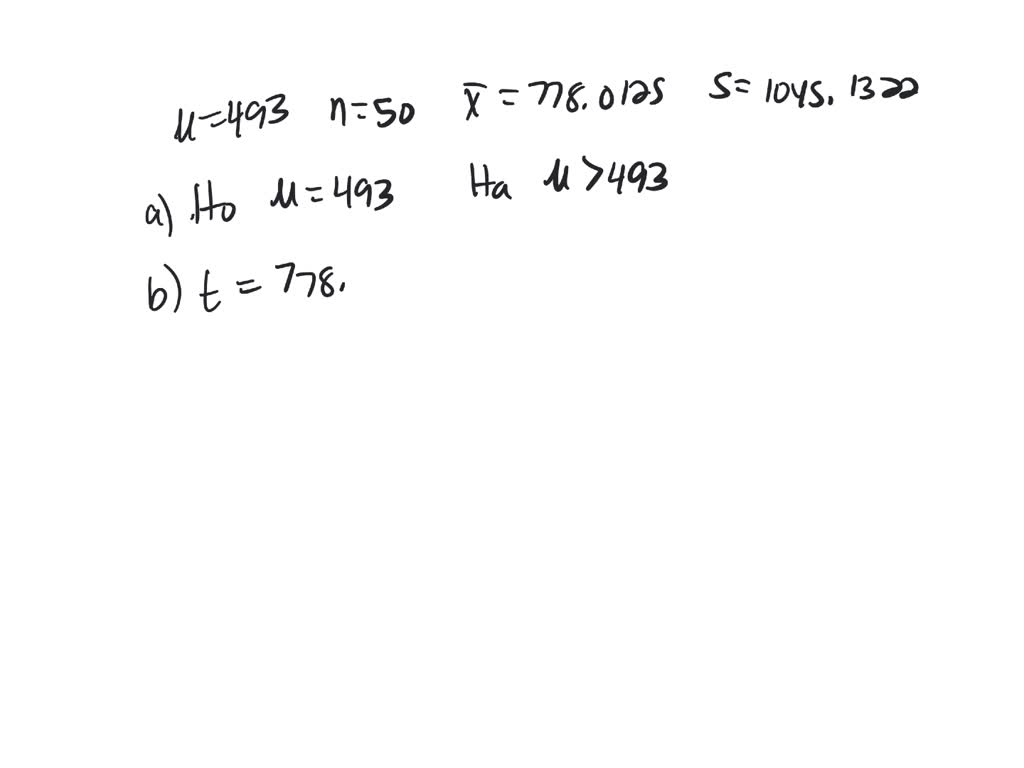 μ=493 n=50 x̄ =778.0125 S=1045.1322
a) H₀ μ=493 Ha μ>493
b) t = 778.